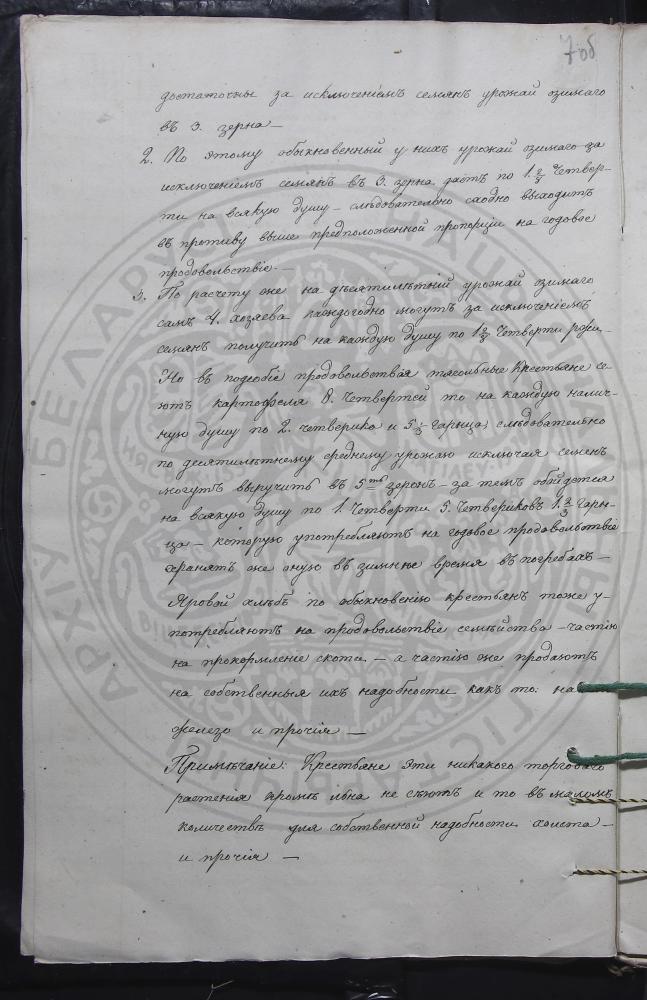 7 об
достаточны за исключеніемъ семянъ урожай озимаго
въ 3. зерна —
2. По этому обыкновенный у нихъ урожай озимаго за
исключеніемъ семянъ въ 3. зерна даетъ по 1. Четвер-
ти на всякую душу — слѣдовательно сходно выходитъ
въ противу выше предположенной пропорціи на годовое
продовольствіе. —
3. По расчету же на дѣсятилѣтній урожай озимаго
самъ 4. хозяева каждогодно могутъ за исключеніемъ
семянъ получить на каждую душу по 1 Четверти ржи. —
Но въ подсобіе продовольствія тяголные Крестьяне се-
ютъ картофеля 8. Четвертей то на каждую налич-
ную душу по 2. четверика и 5 1/3 гарнца; слѣдовательно
по десятилѣтнему среднему урожаю исключая семенъ
могутъ выручить въ 5тъ зеренъ — за темъ обойдется
на всякую душу по 1. Четверти 5. Четвериковъ 1. 2/3 гарн-
ца — которую употребляютъ на годовое продовольствіе
хранятъ же оную въ зимнье время въ погребахъ —
Яровой хлѣбъ по обыкновенію крестьянъ тоже у-
потребляютъ на продовольствіе семѣйства — частію
на прокормленіе скота, — а частію же продаютъ
на собственныя ихъ надобности какъ то: на
железо и прочія —
Примѣчаніе: Крестьяне эти никакого торговаго
растенія кромѣ льна не сѣютъ и то въ маломъ
количествѣ для собственной надобности холста —
и прочія —